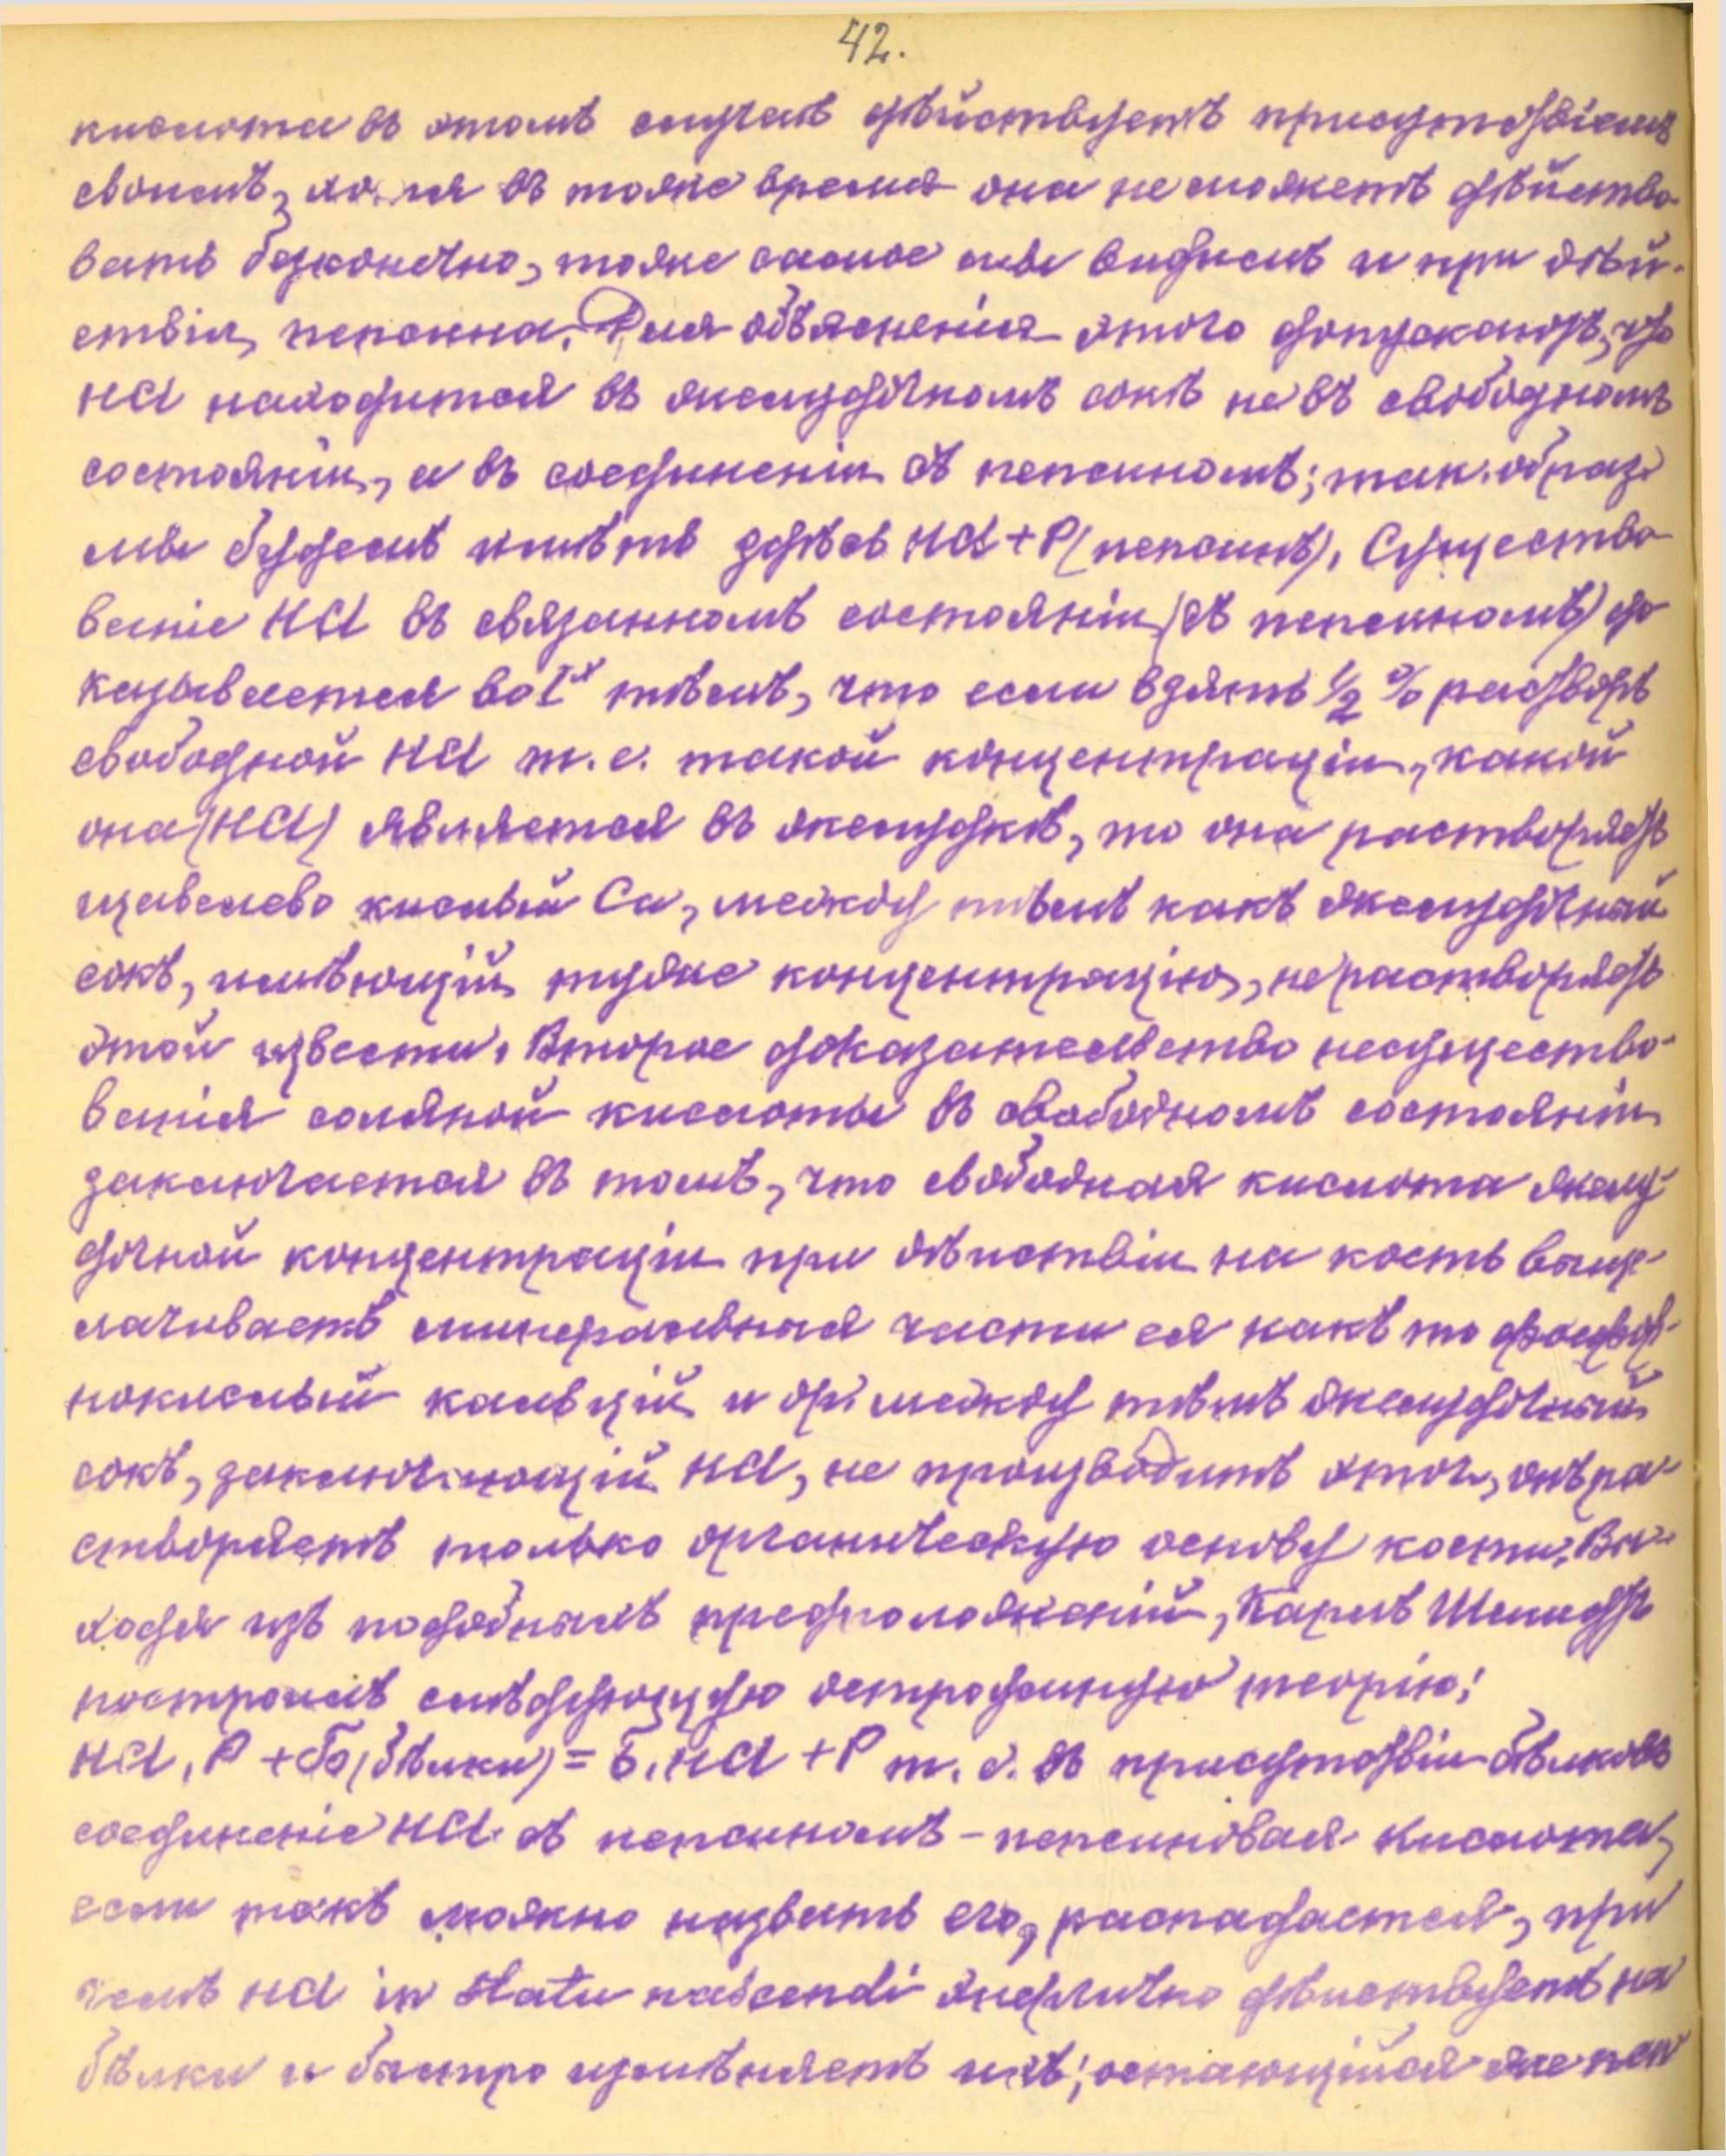 42.
кислота въ этомъ случаѣ дѣйствуетъ присутствіемъ
своимъ, хотя въ тоже время она не можетъ дѣйство-
вать безконечно, тоже самое мы видимъ и при дѣй-
ствіи пепсина. Для объясненія этого допускаютъ, что
HCl находится въ желудочномъ сокѣ не въ свободномъ
состояніи, а въ соединеніи съ пепсиномъ; так. образ.
мы будемъ имѣть здѣсь HCl + P (пепсинъ). Существо-
ваніе HCl въ связанномъ состояніи (съ пепсиномъ) до-
казывается во Iх тѣмъ, что если взять ½ % растворъ
свободной HCl т. е. такой концентраціи, какой
она (HCl) является въ желудкѣ, то она растворяетъ
щавелево кислый Ca, между тѣмъ какъ желудочный
сокъ, имѣющій туже концентрацію, не растворяетъ
этой извести. Второе доказательство несущество-
ванія соляной кислоты въ свободномъ состояніи
заключается въ томъ, что свободная кислота желу-
дочной концентраціи при дѣйствіи на кость выще-
лачиваетъ минеральныя части ея какъ то фосфор-
нокислый кальцій и др. между тѣмъ желудочный
сокъ, заключающій HCl, не производитъ этого, онъ ра-
створяетъ только органическую основу кости. Вы-
ходя изъ подобныхъ предположеній, Карлъ Шмидтъ
построилъ слѣдующую остроумную теорію:
HCl. P + Б (бѣлки) = Б. HCl + P т. е. въ присутствіи бѣлковъ
соединеніе HCl съ пепсиномъ – пепсиновая кислота,
если такъ можно назвать его, распадается, при
чемъ HCl in statu nascendi энергично дѣйствуетъ на
бѣлки и быстро измѣняетъ ихъ; остающійся же пеп